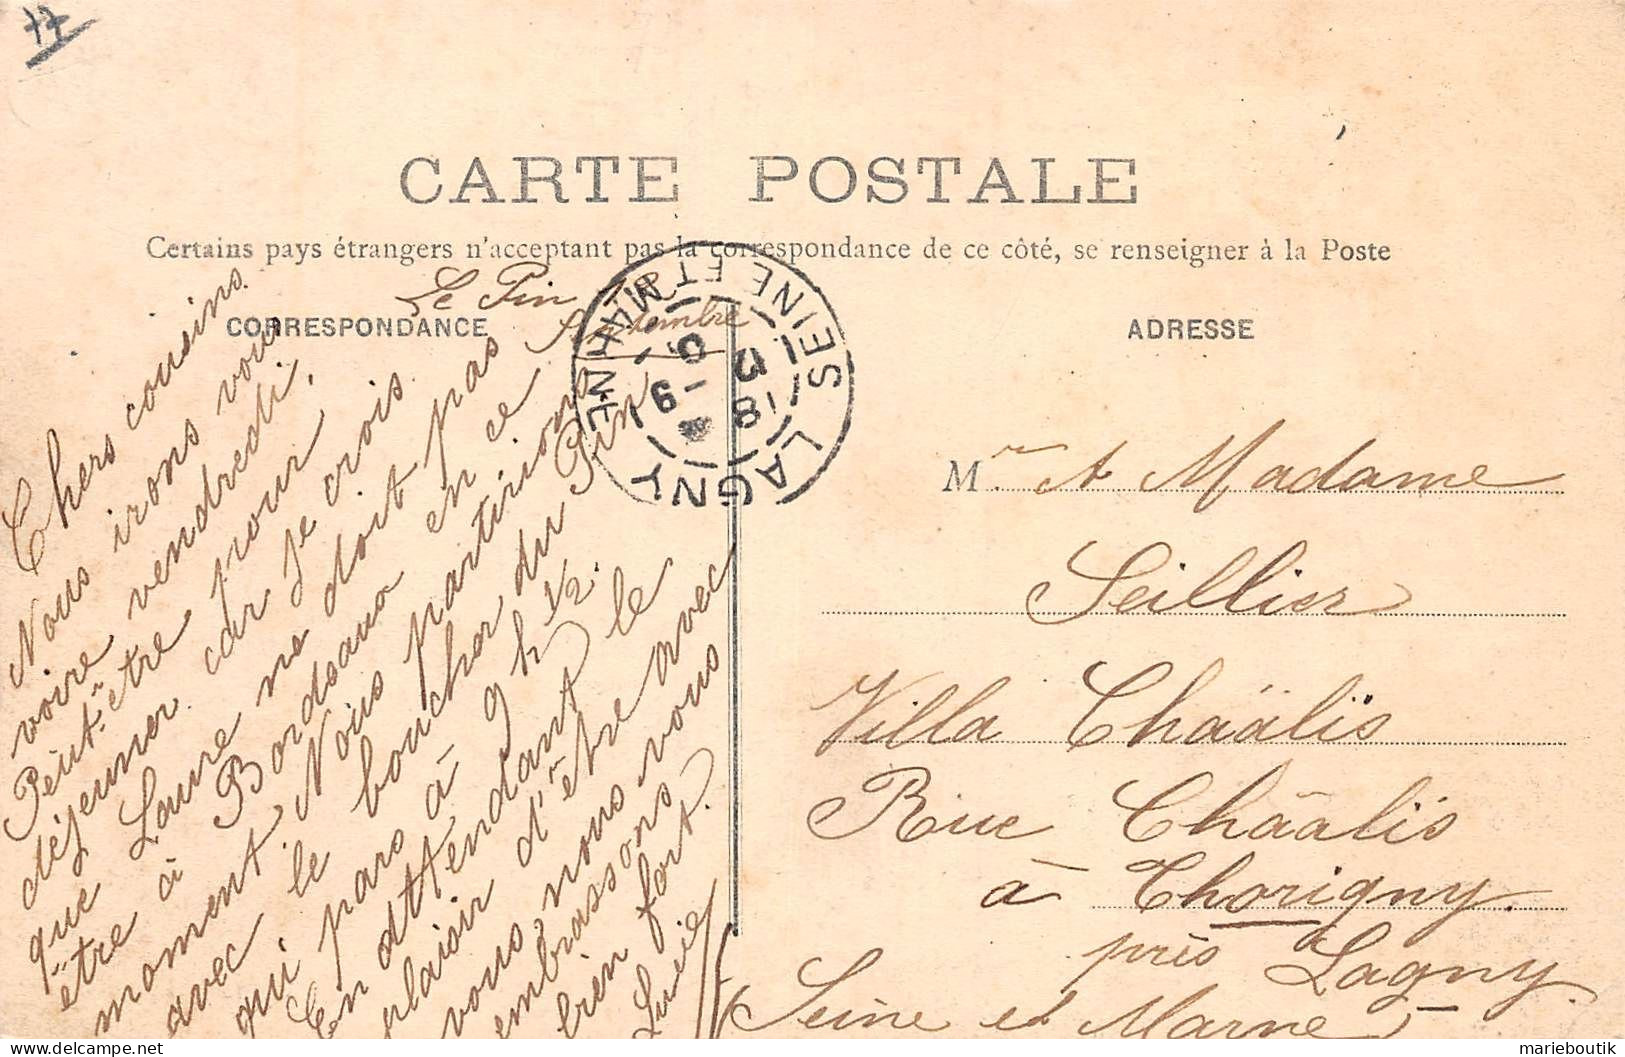 17
CARTE POSTALE
Certains pays étrangers n'acceptant pas la correspondance de ce côté, se renseigner à la Poste
CORRESPONDANCE
ADRESSE
Le Pin
Septembre
Chers cousins
Nous irons vous
voire vendredi,
Peut-être pour
déjeuner car je crois
que Laure ne doit pas
être à Bordeaux en ce
moment. Nous partirions
avec le boucher du Pin
qui pars à 9 h 1/2.
En attendant le
plaisir d'être avec
vous, nous vous
embrassons
bien fort.
LAGNY
SEINE ET MARNE
M. r et Madame
Seillier
Villa Chäalis
Rue Châalis
à Thorigny.
près Lagny
Seine et Marne
marieboutik